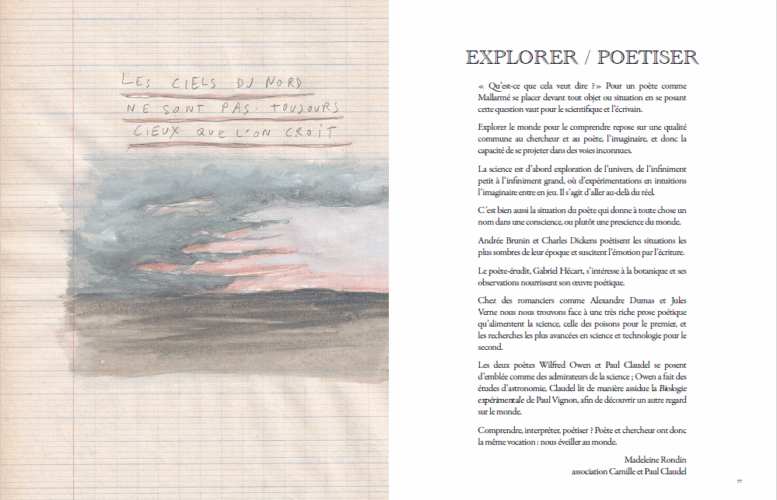 LES CIELS DU NORD
NE SONT PAS TOUJOURS
CIEUX QUE L'ON CROIT
EXPLORER / POETISER
« Qu'est-ce que cela veut dire ? » Pour un poète comme
Mallarmé se placer devant tout objet ou situation en se posant
cette question vaut pour le scientifique et l'écrivain.
Explorer le monde pour le comprendre repose sur une qualité
commune au chercheur et au poète, l'imaginaire, et donc la
capacité de se projeter dans des voies inconnues.
La science est d'abord exploration de l'univers, de l'infiniment
petit à l'infiniment grand, où d'expérimentations en intuitions
l'imaginaire entre en jeu. Il s'agit d'aller au-delà du réel.
C'est bien aussi la situation du poète qui donne à toute chose un
nom dans une conscience, ou plutôt une prescience du monde.
Andrée Brunin et Charles Dickens poétisent les situations les
plus sombres de leur époque et suscitent l'émotion par l'écriture.
Le poète-érudit, Gabriel Hécart, s'intéresse à la botanique et ses
observations nourrissent son œuvre poétique.
Chez des romanciers comme Alexandre Dumas et Jules
Verne nous nous trouvons face à une très riche prose poétique
qu'alimentent la science, celle des poisons pour le premier, et
les recherches les plus avancées en science et technologie pour le
second.
Les deux poètes Wilfred Owen et Paul Claudel se posent
d'emblée comme des admirateurs de la science ; Owen a fait des
études d'astronomie, Claudel lit de manière assidue la Biologie
expérimentale de Paul Vignon, afin de découvrir un autre regard
sur le monde.
Comprendre, interpréter, poétiser ? Poète et chercheur ont donc
la même vocation : nous éveiller au monde.
Madeleine Rondin
association Camille et Paul Claudel